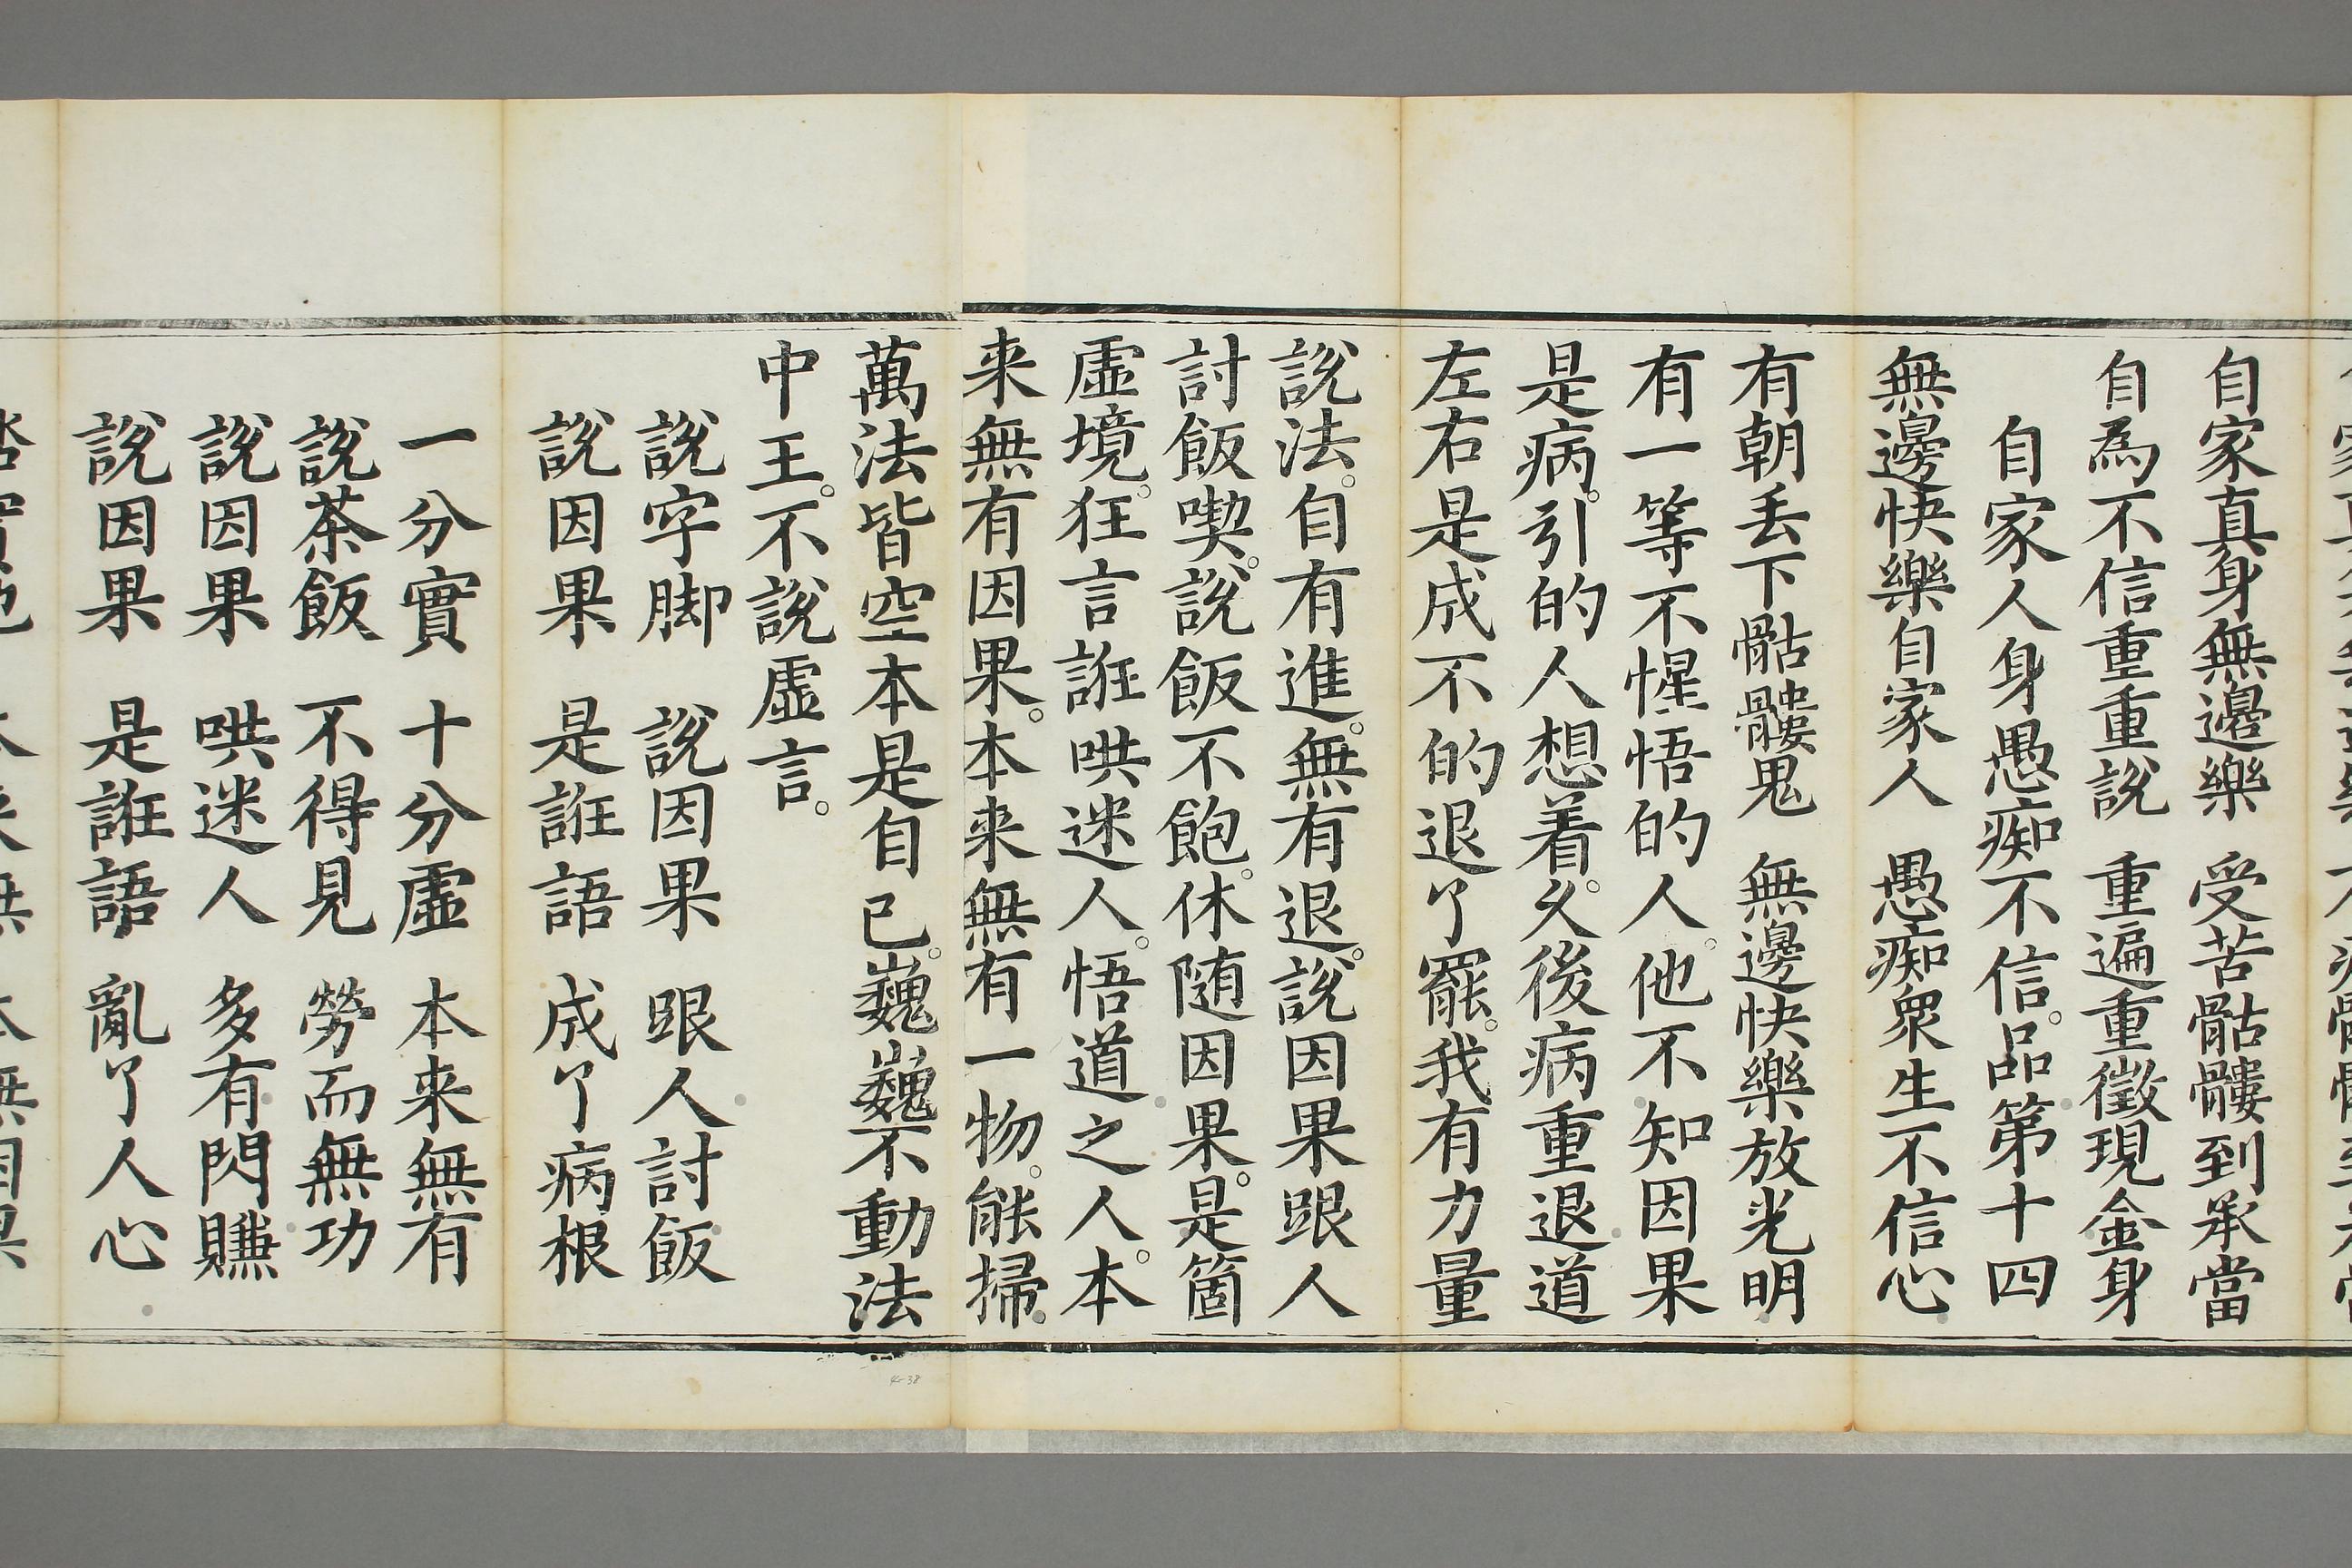 自家真身無邊樂　受苦骷髏到承當
自為不信重重說　重遍重徵現金身
自家人身愚痴不信。品第十四
無邊快樂自家人　愚痴衆生不信心
有朝丢下骷髏鬼　無邊快樂放光明
有一等不惺悟的人。他不知因果
是病。引的人想着。久後病重退道
左右是成不的退了罷。我有力量
說法。自有進。無有退。說因果跟人
討飯喫。說飯不飽。休随因果。是箇
虛境。狂言誑哄迷人。悟道之人。本
来無有因果。本来無有一物。能掃。
萬法皆空本是自己。巍巍不動法
中王。不說虛言。
說字脚　說因果　跟人討飯
說因果　是誑語　成了病根
一分實　十分虛　本来無有
說茶飯　不得見　勞而無功
說因果　哄迷人　多有閃賺
說因果　是誑語　亂了人心